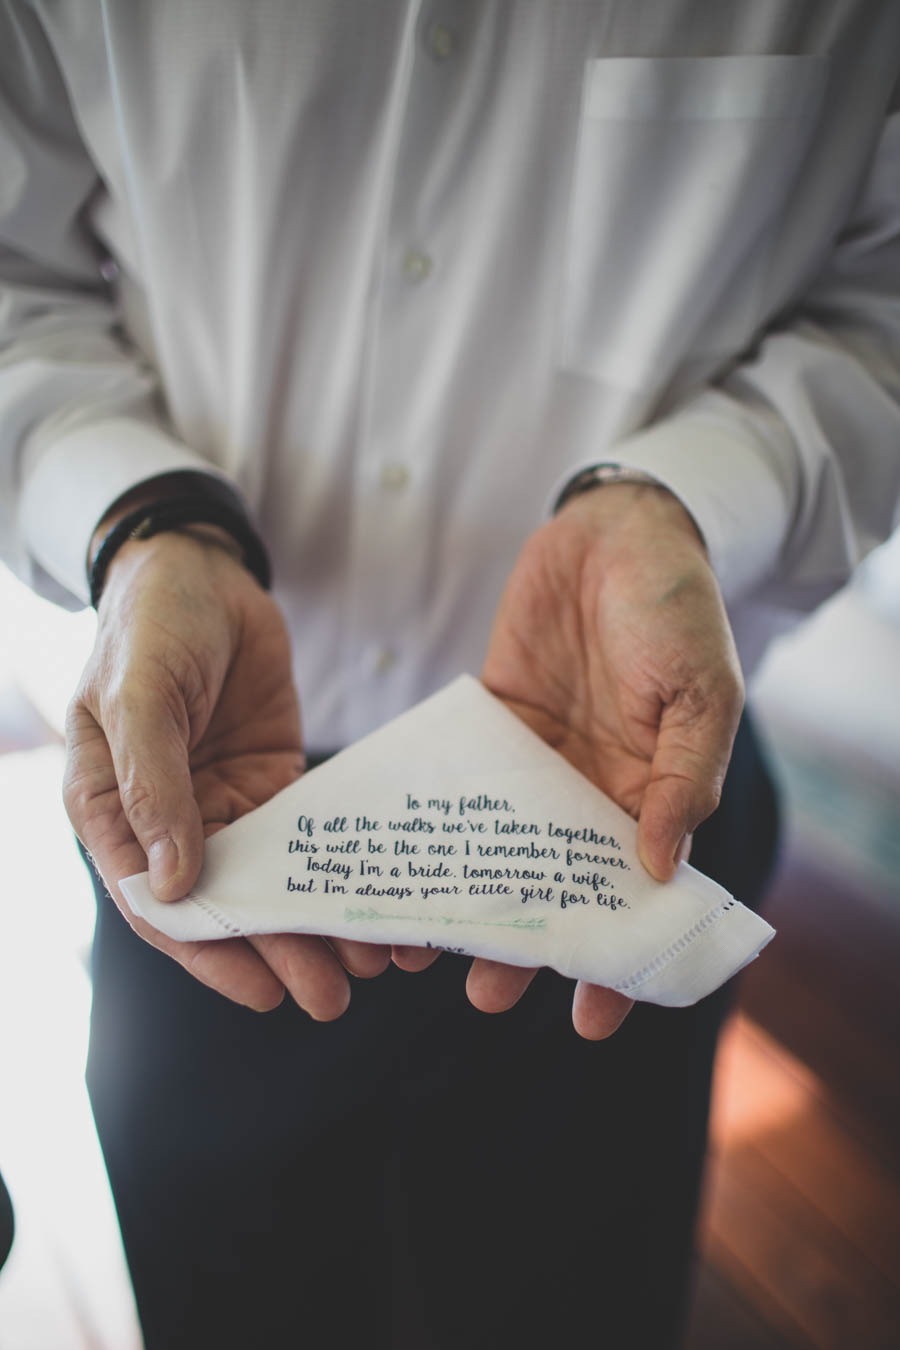 To my father,
Of all the walks we've taken together,
this will be the one I remember forever.
Today I'm a bride, tomorrow a wife,
but I'm always your little girl for life.
Love,